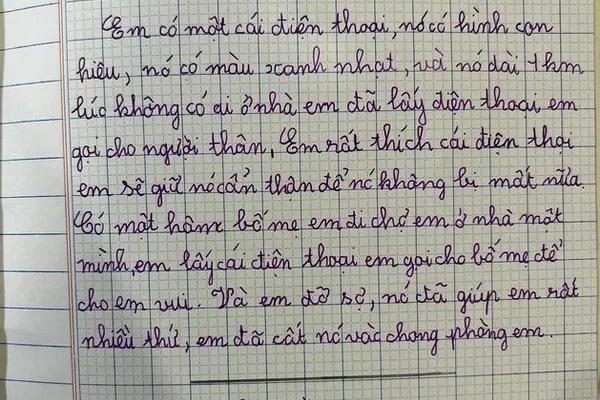 Em có một cái điện thoại, nó có hình con
hiêu, nó có màu xanh nhạt, và nó dài 1 km
lúc không có ai ở nhà em đã lấy điện thoại em
gọi cho người thân, Em rất thích cái điện thoại
em sẽ giữ nó cẩn thận để nó không bị mất nữa.
Có một hôm bố mẹ em đi chợ em ở nhà một
mình, em lấy cái điện thoại em gọi cho bố mẹ để
cho em vui. Và em đỡ sợ, nó đã giúp em rất
nhiều thứ, em đã cất nó vào chong phòng em.